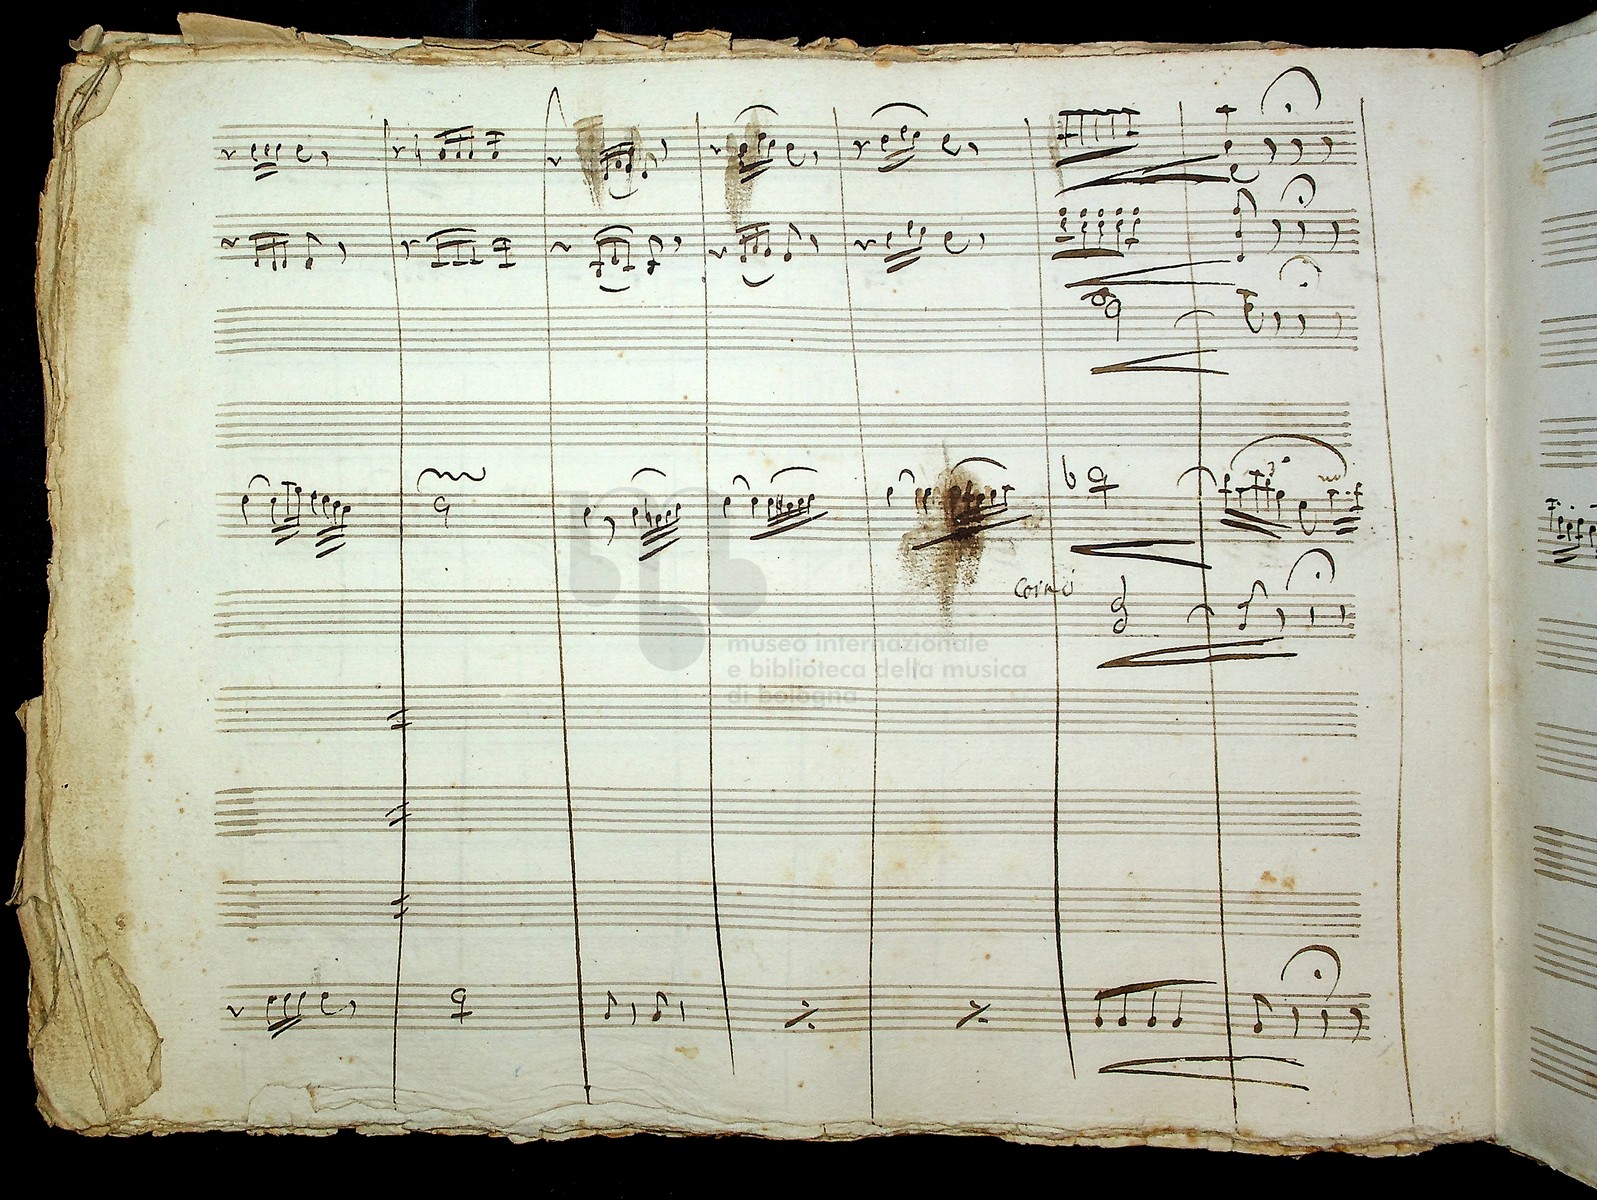 Corni
museo internazionale
e biblioteca della musica
di bologna